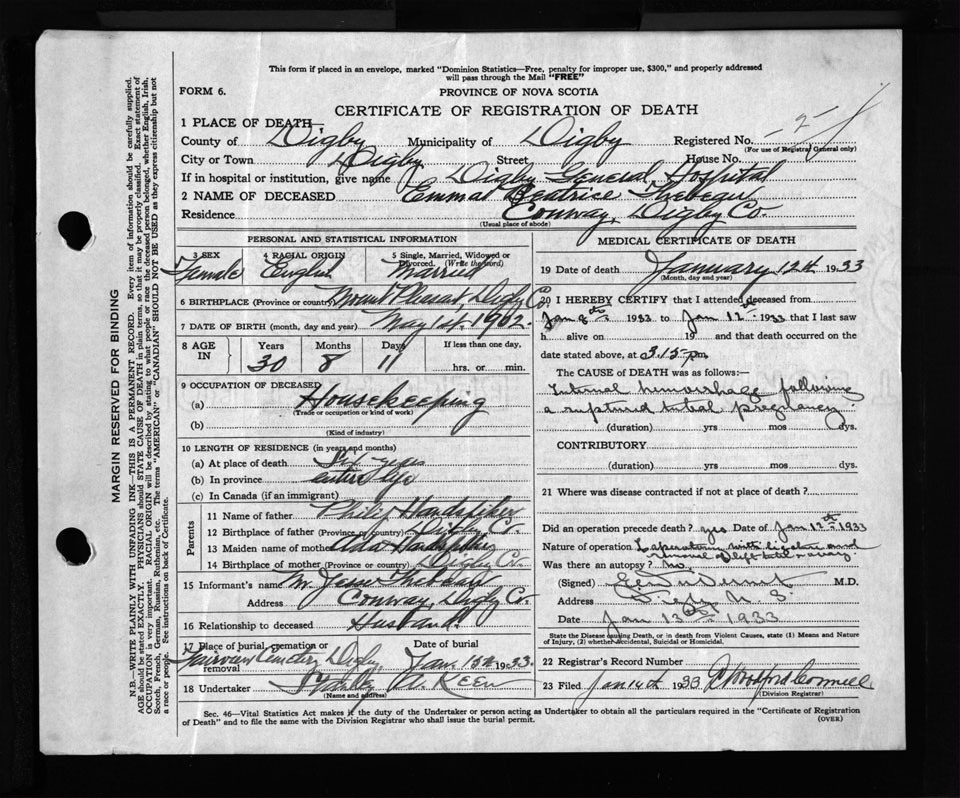 This form if placed in an envelope, marked "Dominion Statistics—Free, penalty for improper use, $300," and properly addressed
will pass through the Mail "FREE"
FORM 6.
PROVINCE OF NOVA SCOTIA
CERTIFICATE OF REGISTRATION OF DEATH
1 PLACE OF DEATH—
County of Digby Municipality of Digby Registered No.
(For use of Registrar General only)
City or Town Digby Street House No.
If in hospital or institution, give name Digby General Hospital
2 NAME OF DECEASED Emma Beatrice
Residence Conway, Digby Co.
(Usual place of abode)
PERSONAL AND STATISTICAL INFORMATION
3 SEX 4 RACIAL ORIGIN 5 Single, Married, Widowed or Divorced. (Write the word)
Female English Married
6 BIRTHPLACE (Province or country) Mount Pleasant, Digby Co.
7 DATE OF BIRTH (month, day and year) May 1st. 1902.
8 AGE IN Years Months Days If less than one day,
30 8 11 hrs. or min.
9 OCCUPATION OF DECEASED
(a) Housekeeping
(Trade or occupation or kind of work)
(b)
(Kind of industry)
10 LENGTH OF RESIDENCE (in years and months)
(a) At place of death
(b) In province entire life
(c) In Canada (if an immigrant)
Parents
11 Name of father Philip
12 Birthplace of father (Province or country) Digby Co.
13 Maiden name of mother Ada
14 Birthplace of mother (Province or country) Digby Co.
15 Informant's name Mr. Jesse
Address Conway, Digby Co.
16 Relationship to deceased Husband
17 Place of burial, cremation or removal Date of burial
Fairview Cemetery Digby, Jan. 15th 1933.
18 Undertaker Stanley A. Keen
(Name and address)
MEDICAL CERTIFICATE OF DEATH
19 Date of death January 12th 1933
(Month, day and year)
20 I HEREBY CERTIFY that I attended deceased from
Jan 8th 1933 to Jan 12th 1933 that I last saw
h alive on 19 and that death occurred on the
date stated above, at 3.15 pm
The CAUSE of DEATH was as follows:—
Internal hemorrhage following
a ruptured tubal pregnancy
(duration) yrs mos dys.
CONTRIBUTORY
(duration) yrs mos dys.
21 Where was disease contracted if not at place of death?
Did an operation precede death? yes Date of Jan 12th 1933
Nature of operation Laparotomy with ligature and
removal of left tube & ovary
Was there an autopsy? No.
(Signed) M.D.
Address Digby N. S.
Date Jan 13th 1933
State the Disease causing Death, or in death from Violent Causes, state (1) Means and Nature
of Injury, (2) whether Accidental, Suicidal or Homicidal.
22 Registrar's Record Number
23 Filed Jan 14th 1933
(Division Registrar)
Sec. 46—Vital Statistics Act makes it the duty of the Undertaker or person acting as Undertaker to obtain all the particulars required in the "Certificate of Registration
of Death" and to file the same with the Division Registrar who shall issue the burial permit.
(OVER)
MARGIN RESERVED FOR BINDING
N.B.—WRITE PLAINLY WITH UNFADING INK—THIS IS A PERMANENT RECORD. Every item of information should be carefully supplied.
AGE should be stated EXACTLY. PHYSICIANS should STATE CAUSE OF DEATH in plain terms, so that it may be properly classified. Exact statement of
OCCUPATION is very important. RACIAL ORIGIN will be described by stating to what people or race the deceased person belonged, whether English, Irish,
Scotch, French, German, Russian, Ruthenian, etc. The terms "AMERICAN" or "CANADIAN" SHOULD NOT BE USED as they express citizenship but not
a race or people. See instructions on back of Certificate.